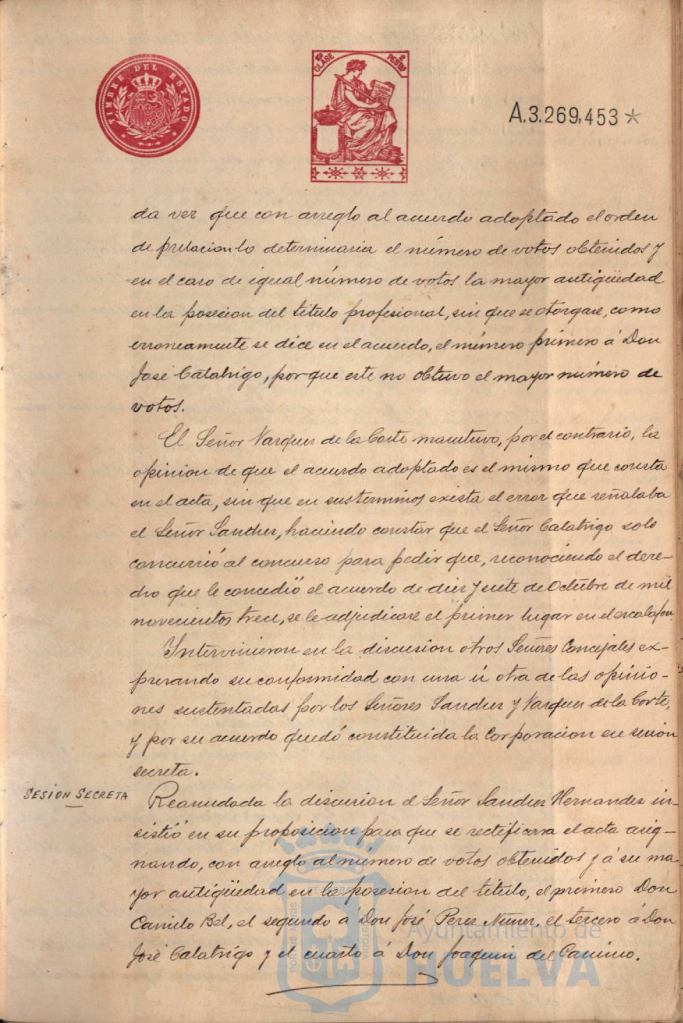 TIMBRE DEL ESTADO
CLASE
PESETAS
A.3.269,453*
da vez que con arreglo al acuerdo adoptado el orden
de prelacion lo determinaria el número de votos obtenidos y
en el caso de igual número de votos la mayor antigüedad
en la posesion del titulo profesional, sin que se otorgase, como
erroneamente se dice en el acuerdo, el número primero á Don
José Calatrigo, porque este no obtuvo el mayor número de
votos.
El Señor Vazquez de la Corte mantuvo, por el contrario, la
opinion de que el acuerdo adoptado es el mismo que consta
en el acta, sin que en sus terminos exista el error que señalaba
el Señor Sanchez, haciendo constar que el Señor Calatrigo solo
concurrió al concurso para pedir que, reconociendo el dere-
cho que le concedió el acuerdo de diez y siete de Octubre de mil
novecientos trece, se le adjudicase el primer lugar en el escalafon
Intervinieron en la discusion otros Señores Concejales ex-
presando su conformidad con una ú otra de las opinio-
nes sustentadas por los Señores Sanchez y Vazquez de la Corte,
y por su acuerdo quedó constituida la Corporacion en sesion
secreta.
SESIÓN SECRETA
Reanudada la discusion el Señor Sanchez Hernandez in-
sistió en su proposicion para que se rectificara el acta asig-
nando, con arreglo al número de votos obtenidos y á su ma-
yor antigüedad en la posesion del titulo, el primero Don
Camilo Bel, el segundo á Don José Perez Nuñez, el tercero á Don
José Calatrigo y el cuarto á Don Joaquin del Camino.
Ayuntamiento de
HUELVA